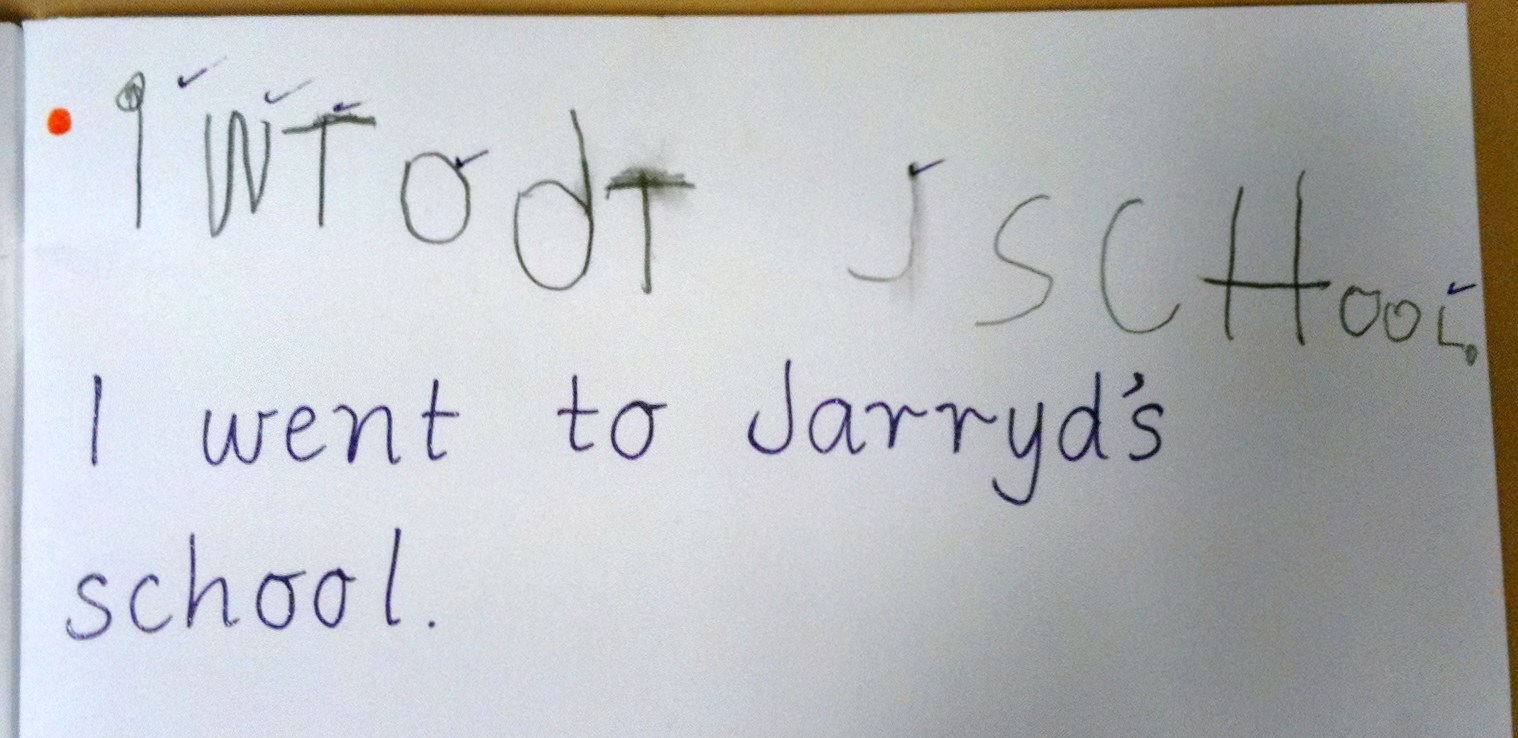 I WT o dT J SCHooL.
I went to Jarryd's
school.